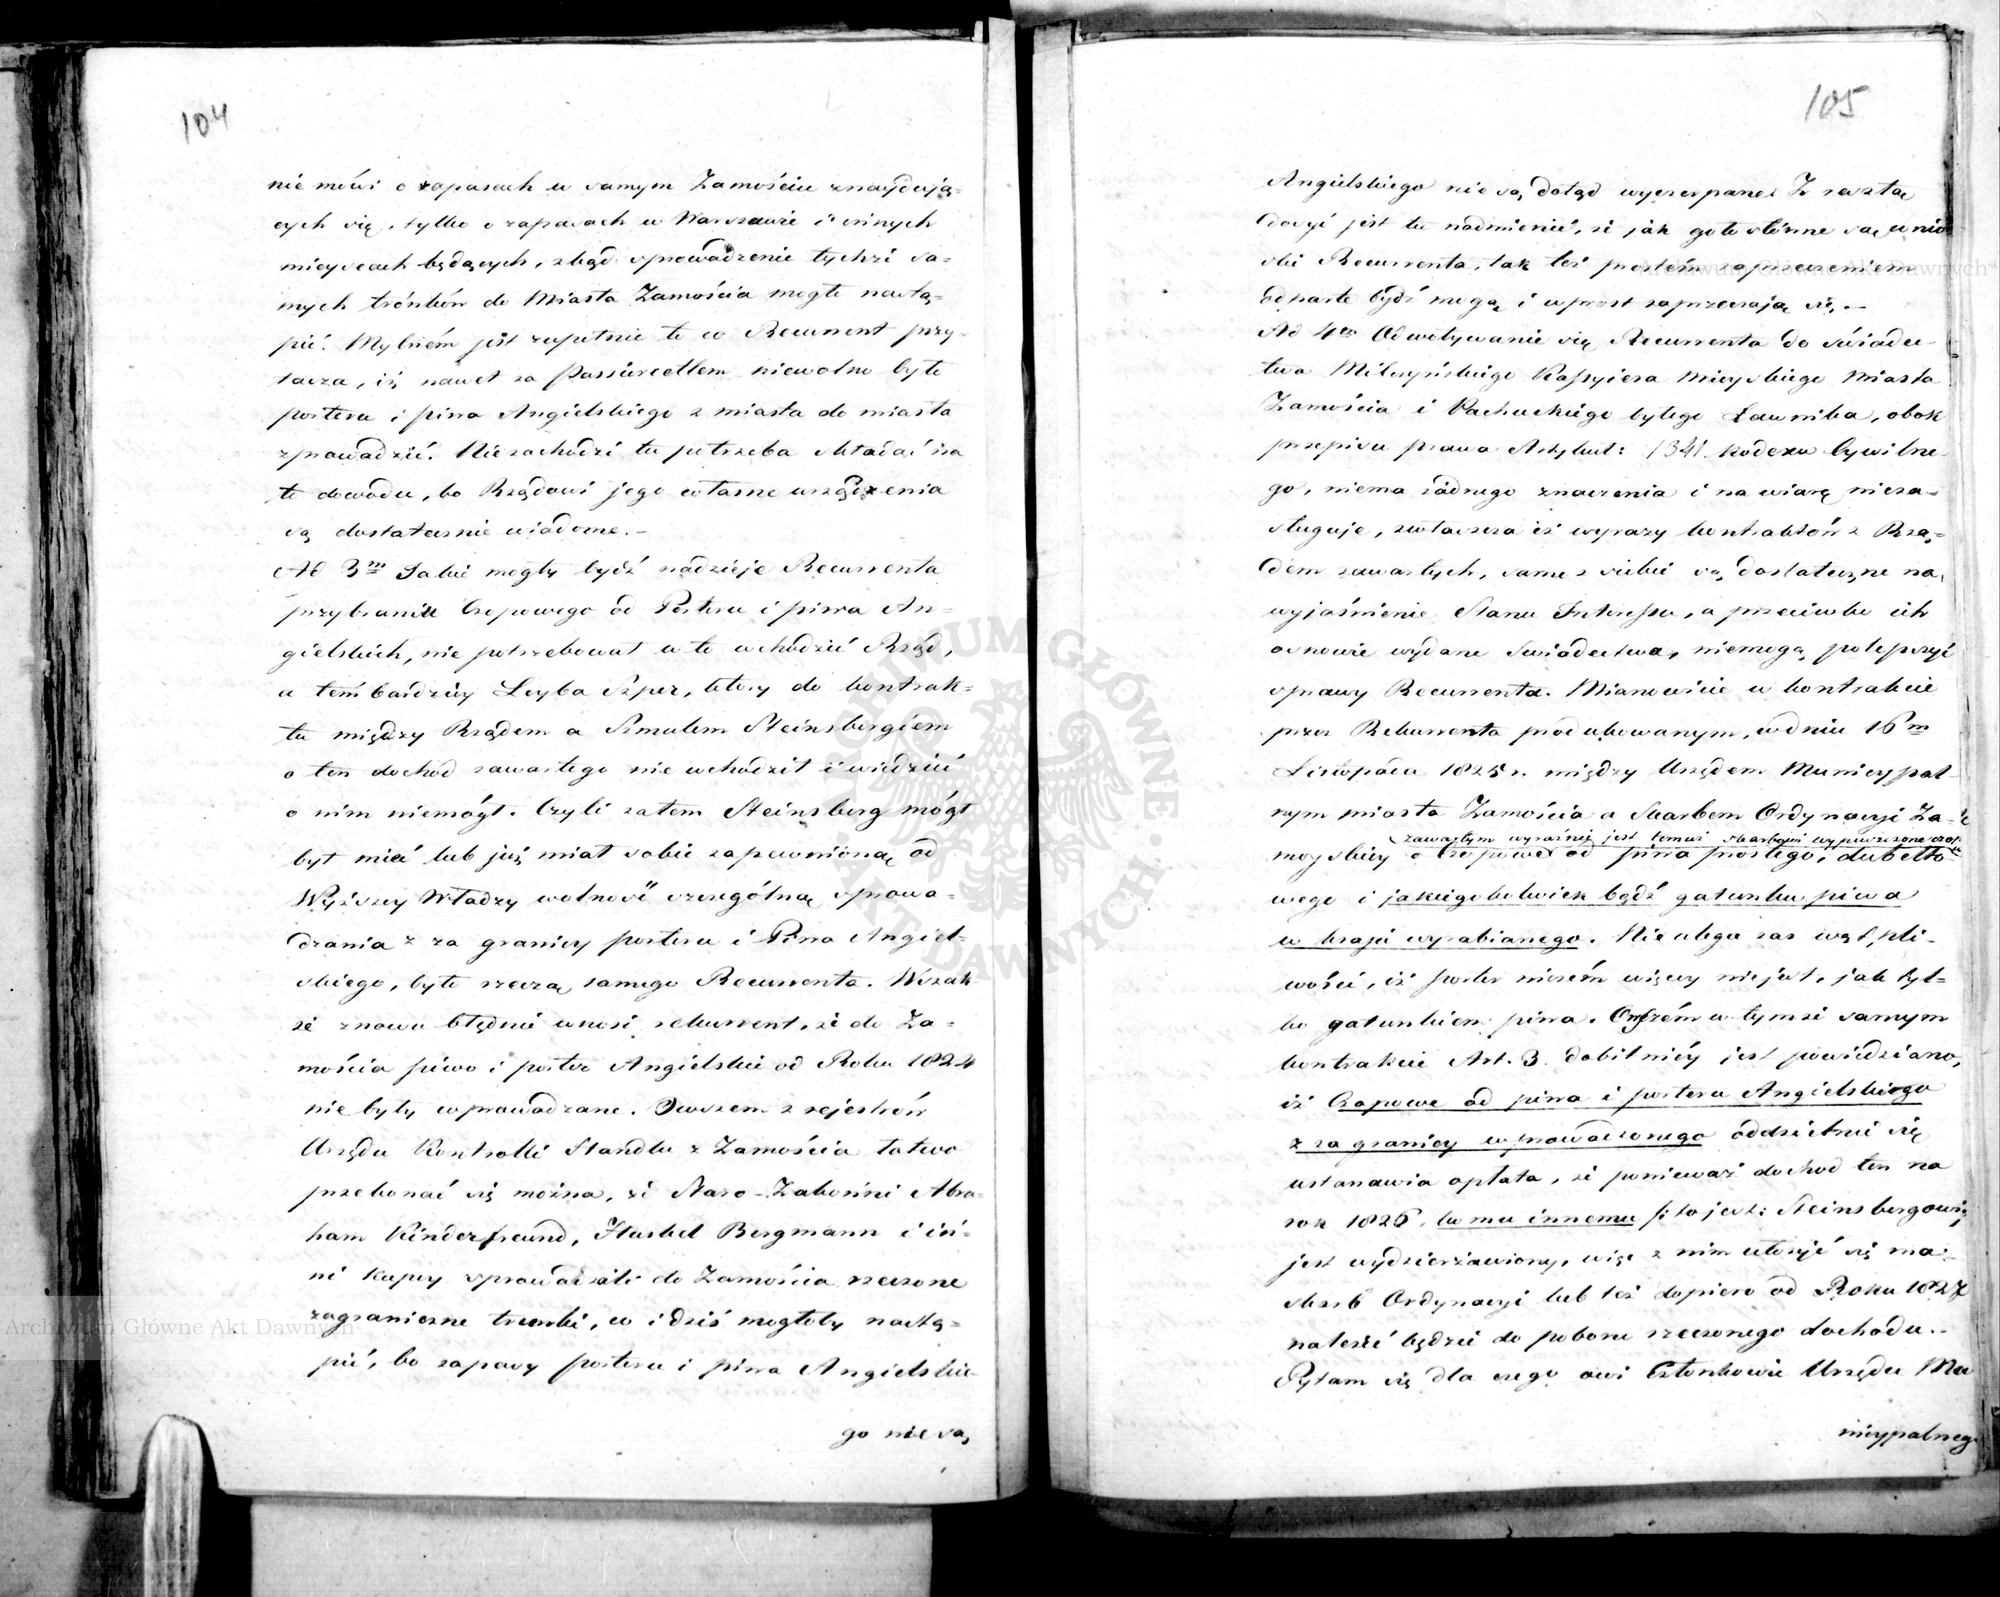 104
nie mówi o zapasach w samym Zamościu znayduią=
cych się, tylko o zapasach w Warszawie i innych
mieyscach będących, zkąd sprowadzenie tychże sa-
mych trónków do Miasta Zamościa mogło nastą-
pić. Mylném jest zupełnie to co Recurrent przy-
tacza, iż nawet za Passircetlem niewolno było
porteru i piwa Angielskiego z miasta do miasta
zprowadzić. Niezachodzi tu potrzeba składać na
to dowodu, bo Rządowi jego własne urządzenia
są dostatecznie wiadome. -
Ad 3m Jakie mogły bydź nadzieje Recurrenta
przybrania Czopowego od Porteru i piwa An=
gielskich, nie potrzebował w to wchodzić Rząd,
a tém bardziey Leyba Szper, który do kontrak=
tu między Rządem a Szmulem Steinsbergiem
o ten dochód zawartego nie wchodził i wiedzieć
o nim niemógł. Czyli zatem Steinsberg mógł
był mieć lub już miał sobie zapewnioną od
Wyższey Władzy wolność szczególną sprowa-
dzania z za granicy porteru i Piwa Angiel-
skiego, było rzeczą samego Recurrenta. Wszak-
że znowu błędnie wnosi rekurrent, że do Za=
mościa piwo i porter Angielskie od Roku 1824
nie były wprowadzane. Owszem z rejestrów
Urzędu Kontrolli Handlu z Zamościa łatwo
przekonać się można, że Staro-Zakonni Abra-
ham Kinderfreund, Herszel Bergmann i in-
ni Kupcy sprowadzali do Zamościa rzeczone
zagraniczne trunki, co i dziś mogłoby nastą=
pić, bo zapasy porteru i piwa Angielskie-
go nie są
105
Angielskiego nie są dotąd wyczerpane. Z resztą
dosyć jest tu nadmienić, że jak gołosłowne są wnio
ski Recurrenta, tak też prostém zaprzeczeniem
odparte bydź mogą i wprost zaprzeczają się. -
Ad 4to Odwoływanie się Recurrenta do świadec-
twa Milczyńskiego Kassyiera Mieyskiego Miasta
Zamościa i Pachuckiego byłego Ławnika, obok
przepisu prawa Artykuł: 1341 kodexu Cywilne-
go, niema żadnego znaczenia i na wiarę nieza=
sługuje, zwłaszcza iż wyrazy kontraktów z Rzą=
dem zawartych, same z siebie są dostateczne na
wyjaśnienie Stanu Interessu, a przeciwko ich
osnowie wydane świadectwa, niemogą polepszyć
sprawy Recurrenta. Mianowicie w kontrakcie
przez Rekurrenta produkowanym, w dniu 16m
Listopada 1825 r. między Urzędem Municypal-
nym miasta Zamościa a Skarbem Ordynacyi Za-
zawartym wyraźnie jest temuż Skarbowi wypuszczone czop
moyskiey o Czopowe od piwa prostego, dubelto-
wego i jakiegokolwiek bądź gatunku piwa
w kraju wyrabianego. Nie ulega zaś wątpli-
wości, iż porter niczém więcey nie jest, jak tyl=
ko gatunkiem piwa. Oprócz w tymże samym
kontrakcie Art. 3. dobitniéy jest powiedziano,
iż Czopowe od piwa i porteru Angielskiego
z za granicy wprowadzonego oddzielnie się
ustanawia opłata, że ponieważ dochód ten na
rok 1826. komu innemu /: to jest: Steinsbergowi :/
jest wydzierżawiony, więc z nim ułożyć się ma
Skarb Ordynacyi lub też dopiero od Roku 1827
należeć będzie do poboru rzeczonego dochodu. -
Pytam się dla czego owi Członkowie Urzędu Mu
nicypalnego
Archiwum Główne Akt Dawnych